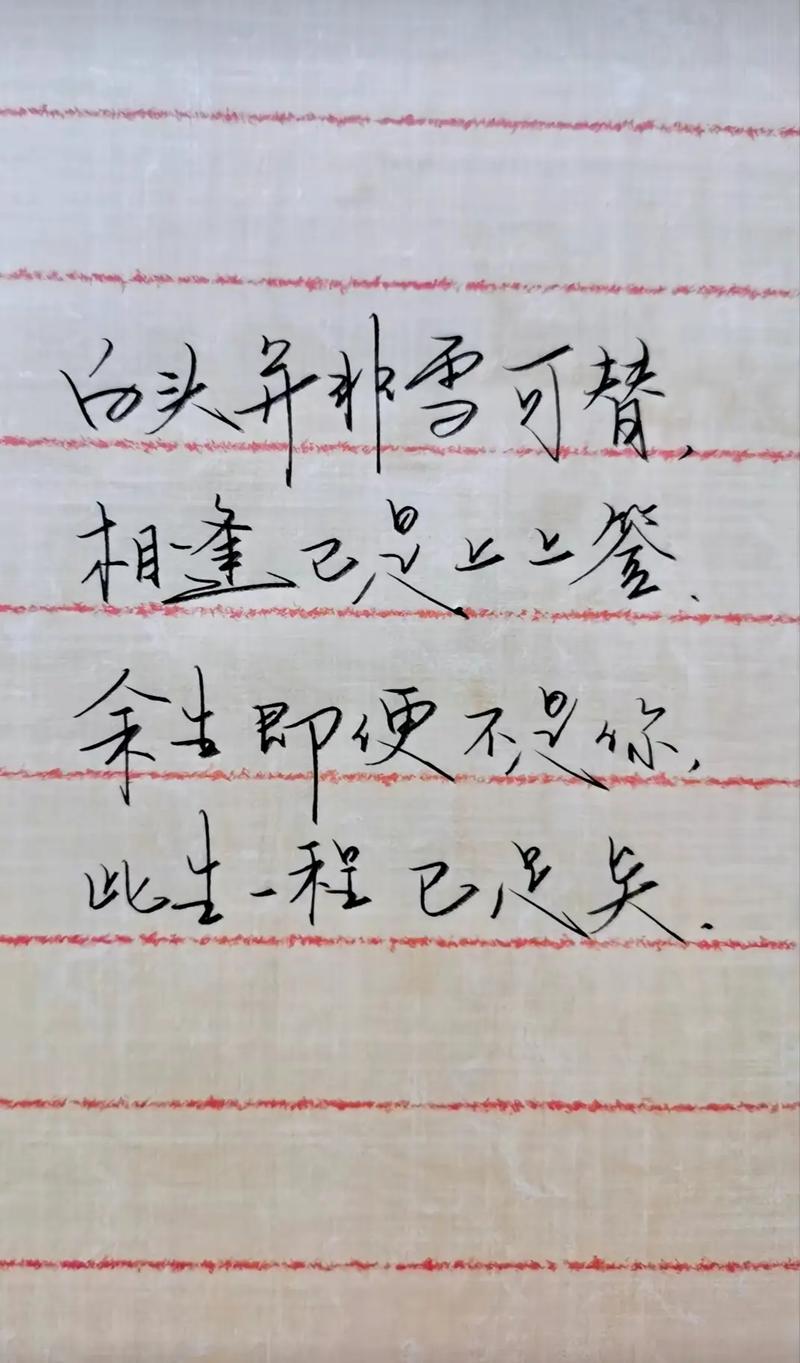 白头并非雪可替,
相逢已是上上签.
余生即便不是你,
此生一程已足矣.